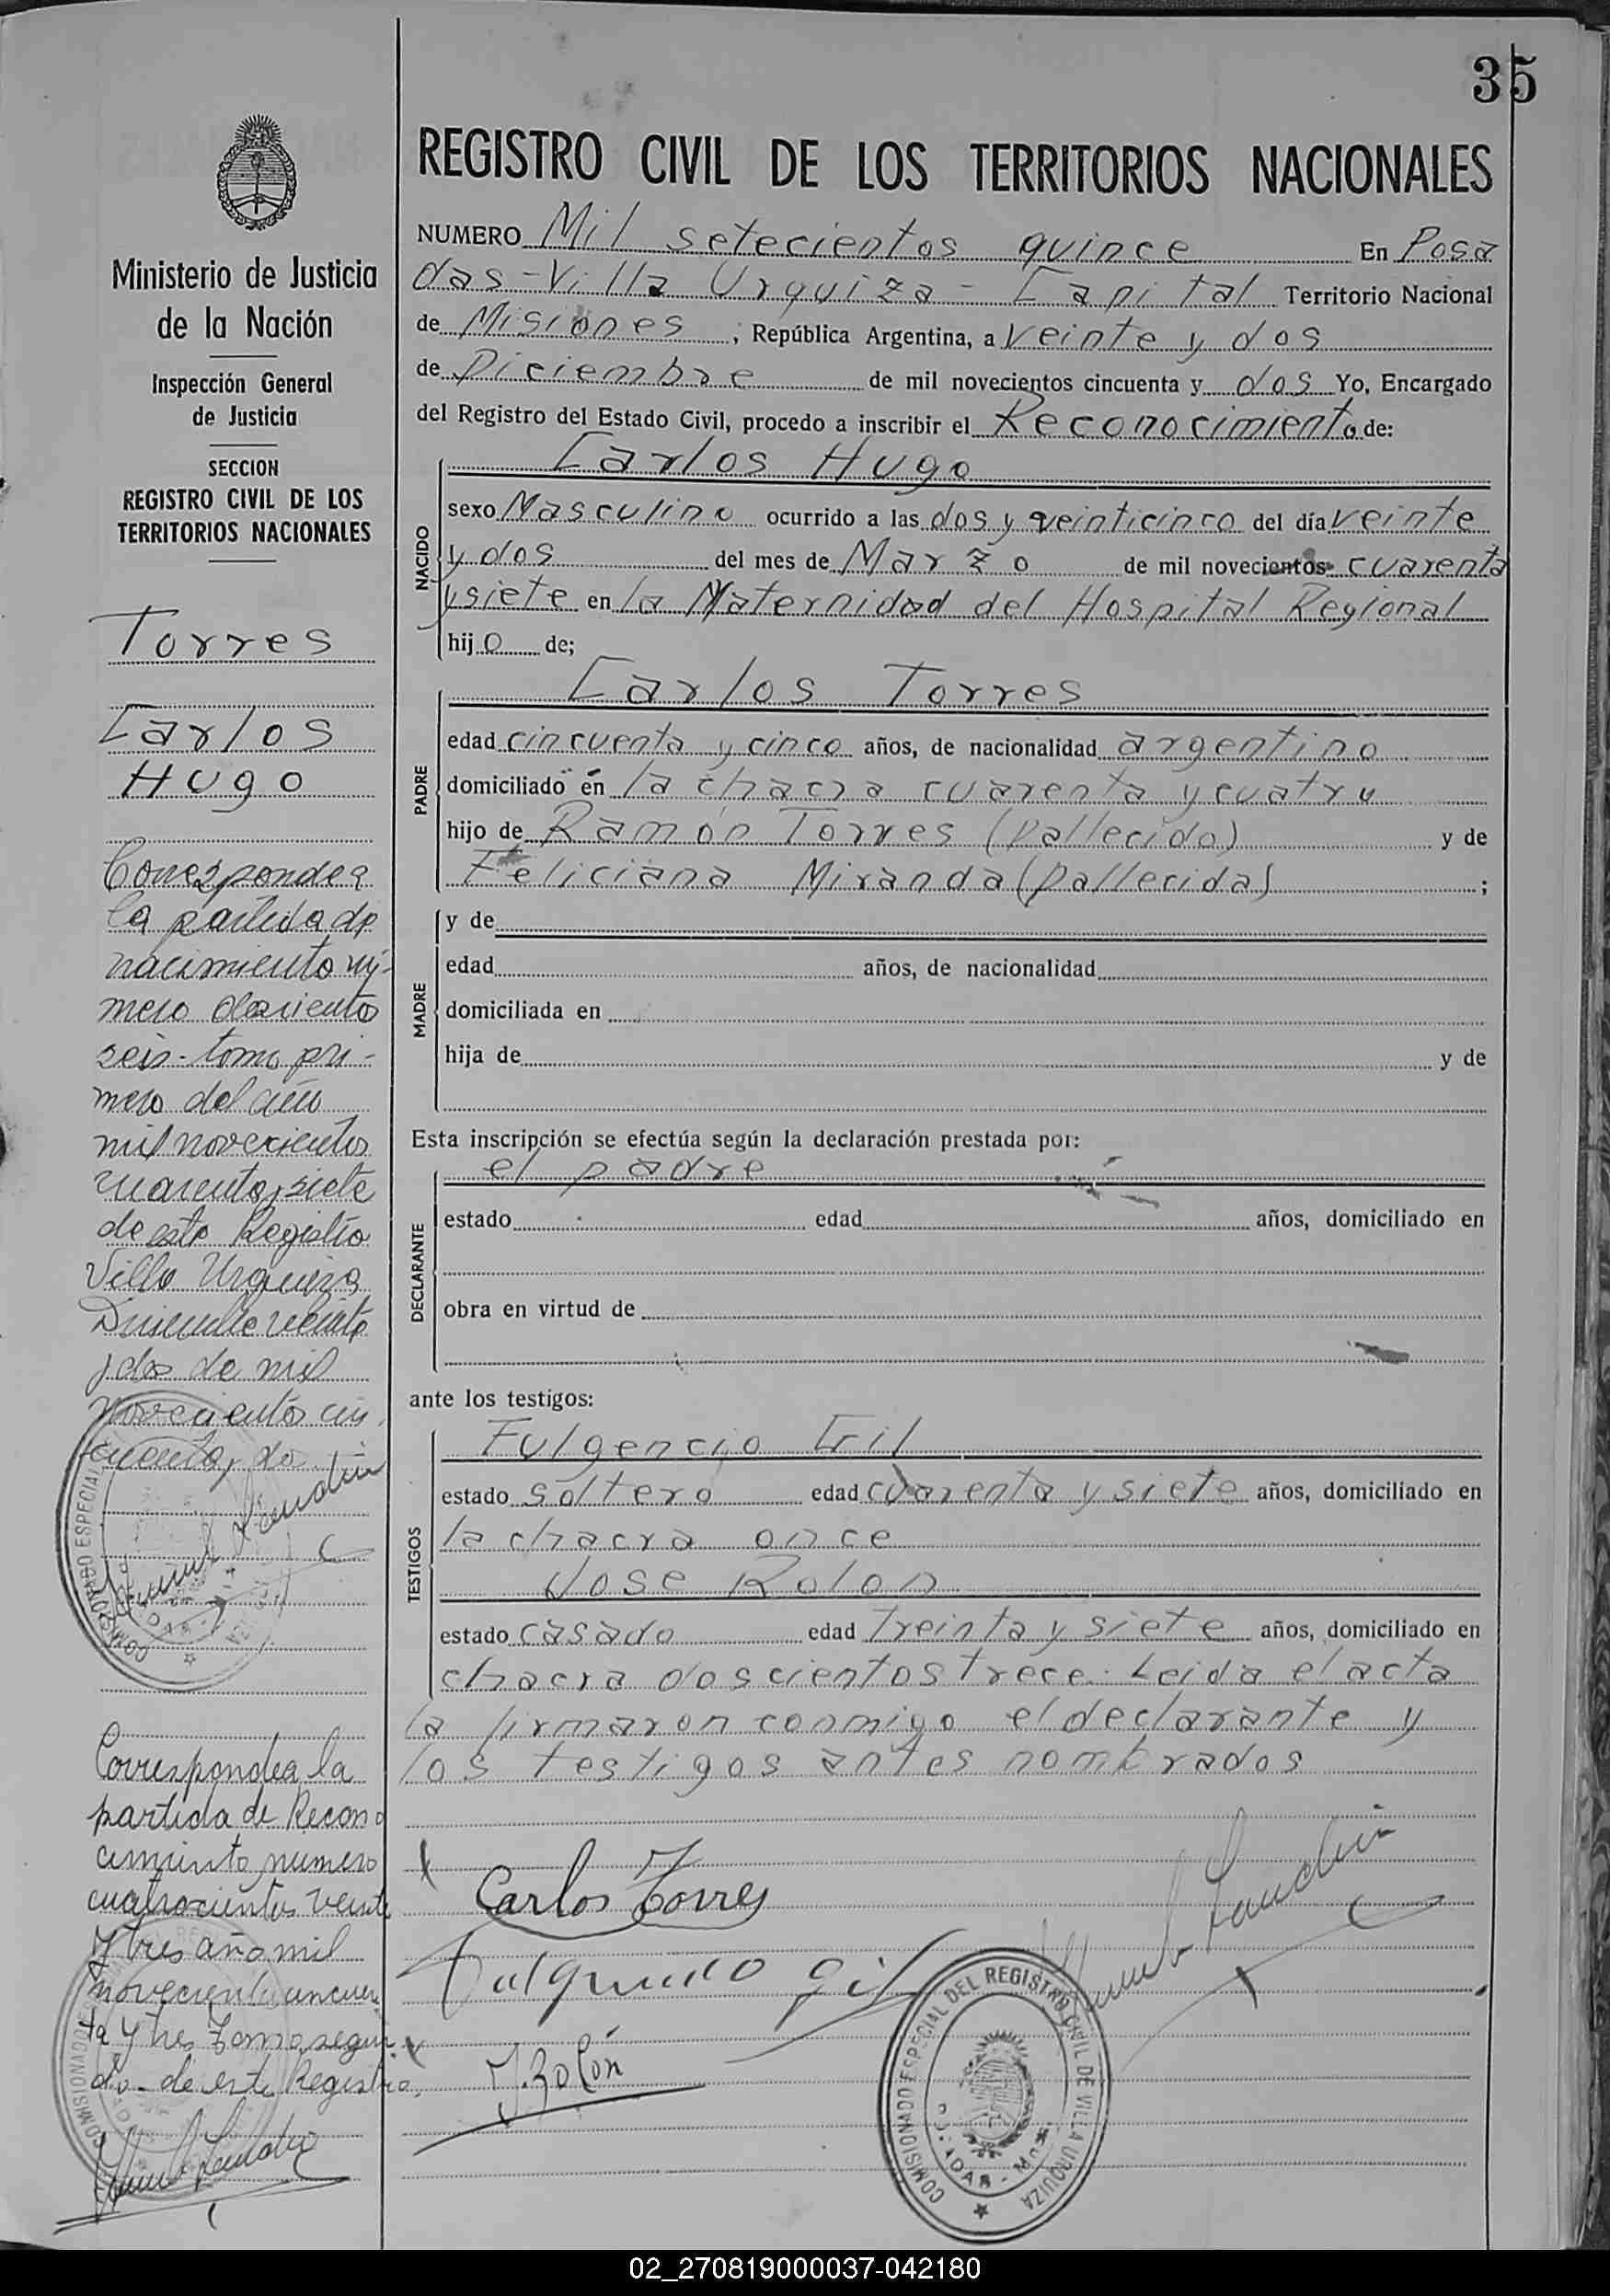 35
Ministerio de Justicia
de la Nación
Inspección General
de Justicia
SECCION
REGISTRO CIVIL DE LOS
TERRITORIOS NACIONALES
Torres
Carlos
Hugo
Corresponde a
la partida de
nacimiento nú-
mero doscientos
seis - tomo pri-
mero del año
mil novecientos
cuarenta y siete
de este Registro
Villa Urquiza
Diciembre veinte
y dos de mil
novecientos cin
cuenta y dos
COMISIONADO ESPECIAL
Corresponde a la
partida de Recono
cimiento numero
cuatrocientos veinte
y tres año mil
novecientos cincuen
ta y tres tomo segun
do - de este Registro,
REGISTRO CIVIL DE LOS TERRITORIOS NACIONALES
NUMERO Mil setecientos quince En Posa
das - Villa Urquiza - Capital Territorio Nacional
de Misiones, República Argentina, a veinte y dos
de Diciembre de mil novecientos cincuenta y dos Yo, Encargado
del Registro del Estado Civil, procedo a inscribir el Reconocimiento de:
NACIDO
Carlos Hugo
sexo Masculino ocurrido a las dos y veinticinco del día veinte
y dos del mes de Marzo de mil novecientos cuarenta
y siete en la Maternidad del Hospital Regional
hijo de;
PADRE
Carlos Torres
edad cincuenta y cinco años, de nacionalidad argentino
domiciliado en la chacra cuarenta y cuatro
hijo de Ramón Torres (fallecido) y de
Feliciana Miranda (fallecida);
MADRE
y de
edad años, de nacionalidad
domiciliada en
hija de y de
Esta inscripción se efectúa según la declaración prestada por:
DECLARANTE
el padre
estado edad años, domiciliado en
obra en virtud de
ante los testigos:
TESTIGOS
Fulgencio Gil
estado soltero edad cuarenta y siete años, domiciliado en
la chacra once
Jose Rolon
estado casado edad treinta y siete años, domiciliado en
chacra doscientos trece. Leida el acta
la firmaron conmigo el declarante y
los testigos antes nombrados
Carlos Torres
Gil
J. Rolón
COMISIONADO ESPECIAL DEL REGISTRO CIVIL DE VILLA URQUIZA
02_270819000037-042180